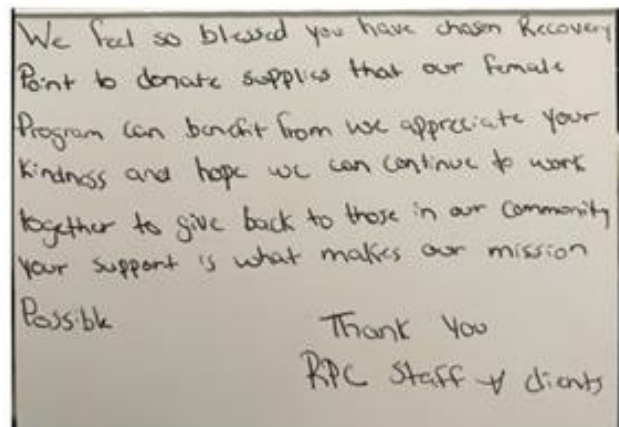 We feel so blessed you have chosen Recovery
Point to donate supplies that our female
Program can benefit from we appreciate your
kindness and hope we can continue to work
together to give back to those in our community
your support is what makes our mission
Possible
Thank You
RPC Staff & clients